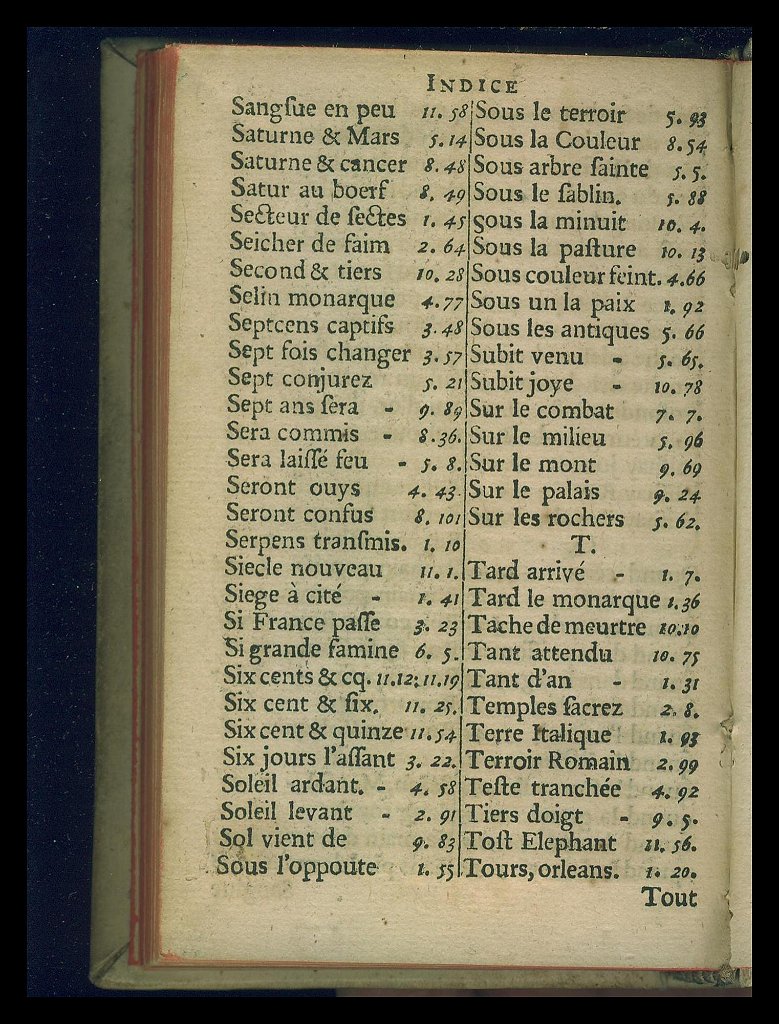 INDICE
Sangſue en peu 11. 58
Saturne & Mars 5. 14
Saturne & cancer 8. 48
Satur au boerf 8. 49
Secteur de ſectes 1. 45
Seicher de faim 2. 64
Second & tiers 10. 28
Selin monarque 4. 77
Septcens captifs 3. 48
Sept fois changer 3. 57
Sept conjurez 5. 21
Sept ans ſera - 9. 89
Sera commis - 8. 36.
Sera laiſſé feu - 5. 8.
Seront ouys 4. 43.
Seront confus 8. 101
Serpens tranſmis. 1. 10
Siecle nouveau 11. 1.
Siege à cité - 1. 41
Si France paſſe 3. 23
Si grande famine 6. 5.
Six cents & cq. 11.12. 11.19
Six cent & ſix. 11. 25.
Six cent & quinze 11. 54
Six jours l'aſſant 3. 22.
Soleil ardant. - 4. 58
Soleil levant - 2. 91
Sol vient de 9. 83
Sous l'oppoute 1. 55
Sous le terroir 5. 93
Sous la Couleur 8. 54
Sous arbre ſainte 5. 5.
Sous le ſablin. 5. 88
Sous la minuit 10. 4.
Sous la paſture 10. 13
Sous couleur feint. 4. 66
Sous un la paix 1. 92
Sous les antiques 5. 66
Subit venu - 5. 65.
Subit joye - 10. 78
Sur le combat 7. 7.
Sur le milieu 5. 96
Sur le mont 9. 69
Sur le palais 9. 24
Sur les rochers 5. 62.
T.
Tard arrivé - 1. 7.
Tard le monarque 1. 36
Tache de meurtre 10. 10
Tant attendu 10. 75
Tant d'an - 1. 31
Temples ſacrez 2. 8.
Terre Italique 1. 93
Terroir Romain 2. 99
Teſte tranchée 4. 92
Tiers doigt - 9. 5.
Toſt Elephant 11. 56.
Tours, orleans. 1. 20.
Tout